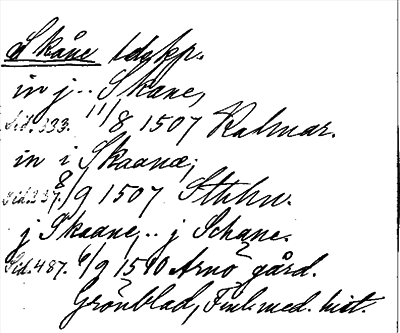 Skåne ldskp.
in j .. Skane,
Sid. 333. 11/8 1507 Kalmar.
in i Skaanæ;
Sid. 337. 8/9 1507 Sthlm.
j Skaane, .. j Schane.
Sid. 487. 6/9 1510 Arnö gård.
Grönblad, Finl: med. hist.